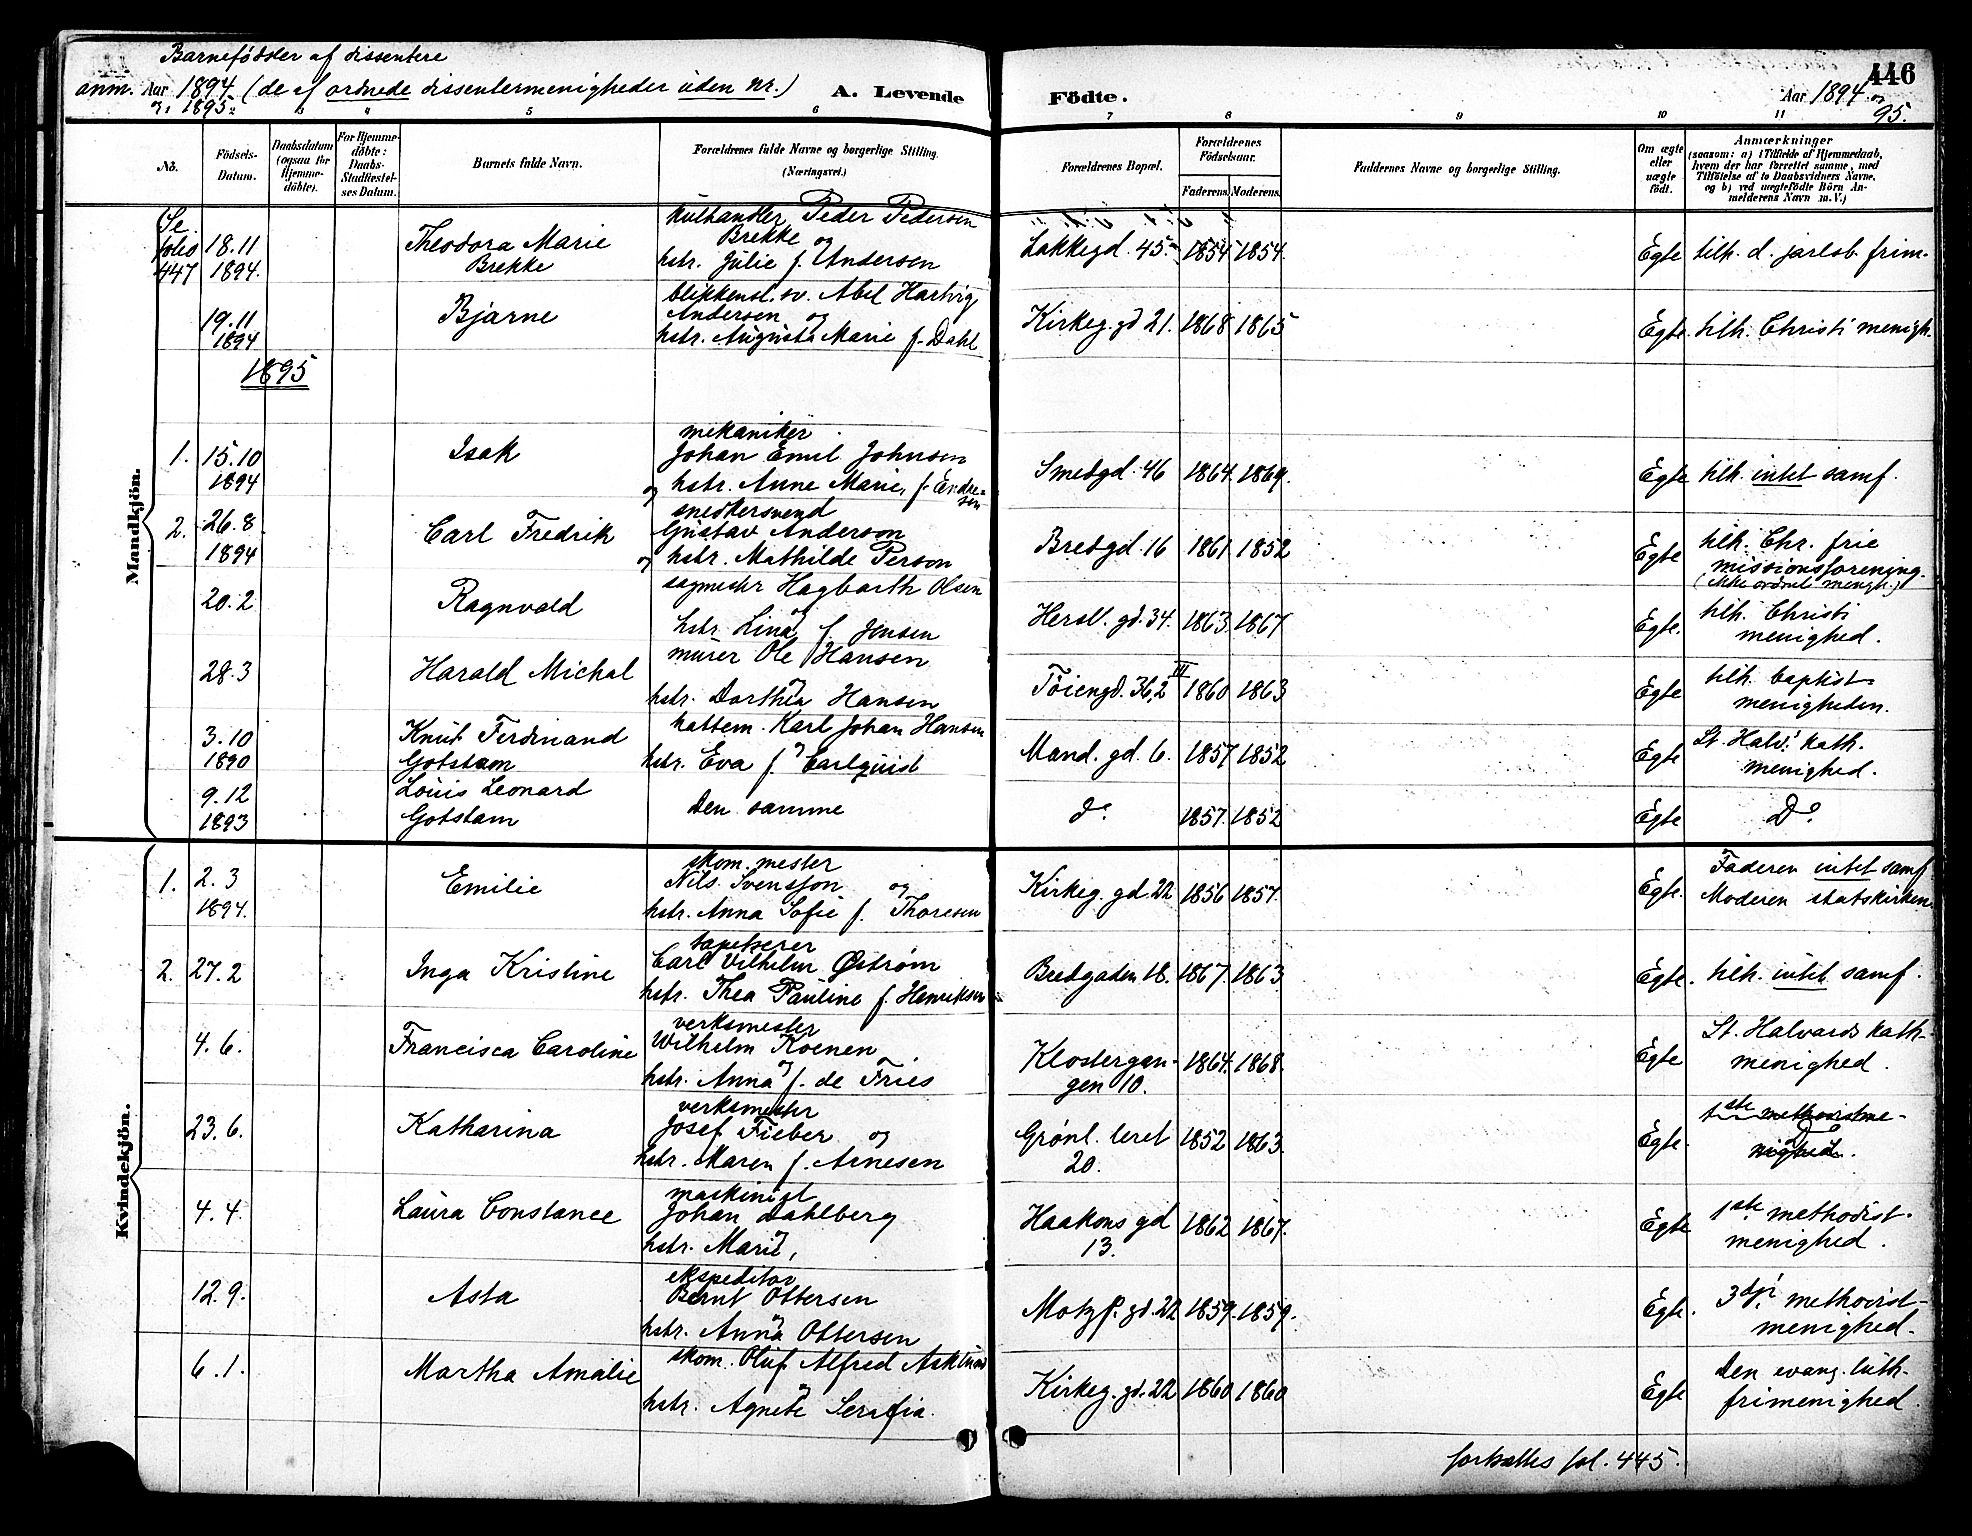 Barnefødsler af dissentere
anm. Aar 1894 (de af ordnede dissentermenigheder uden nr.) A. Levende Födte. Aar 1894 og
og 1895. 95.
446
3 4 5 6 7 8 9 10 11
No. Födsels-Datum. Daabsdatum (ogsaa for Hjemme-döbte). For Hjemme-döbte: Daabs-Stadfæstel-ses Datum. Barnets fulde Navn. Forældrenes fulde Navne og borgerlige Stilling. (Næringsvei.) Forældrenes Bopæl. Forældrenes Födselsaar. Faderens. Moderens. Faddernes Navne og borgerlige Stilling. Om ægte eller uægte födt. Anmærkninger (saasom: a) i Tilfælde af Hjemmedaab, hvem der har forrettet samme, med Tilföielse af to Daabsvidners Navne, og b) ved uægtefödte Börn Anmelderens Navn m. V.)
Mandkjön.
Se folio 447 18.11 1894. Theodora Marie Brekke kulhandler Peder Pedersen Brekke og hstr. Julie f. Andersen Lakkegd. 45. 1854 1854. Egte tilh. d. jarlsb. frim.
19.11 1894 Bjarne blikkensl. sv. Abel Hartvig Andersen og hstr. Augusta Marie f. Dahl Kirkeg. gd 21. 1868 1865 Egte. tilh. Christi menigh.
1895
1. 15.10 1894 Isak mekaniker Johan Emil Johnsen og hstr. Anne Marie, f. Endresen Smedgd. 46 1864. 1869. Egte tilh. intet samf.
2. 26.8 1894 Carl Fredrik snedkersvend Gustav Anderson og hstr. Mathilde Person Bredgd. 16 1861 1852 Egte tilh. Chr. frie missionsforening. (ikke ordnet menigh.)
20.2 Ragnvald sagmestr Hagbarth Olsen og hstr. Lina f. Jensen Hersl. gd. 34. 1863 1867 Egte. tilh. Christi menighed.
28.3 Harald Michal murer Ole Hansen og hstr. Dorthea Hansen Töiengd. 36,2 III 1860 1863 Egte tilh. baptist menigheden.
3.10 1890 Knut Ferdinand Gotstam hattem. Karl Johan Hansen og hstr. Eva f. Carlquist Mand. gd. 6. 1857 1852 Egte St. Halv. kath. menighed.
9.12 1893 Louis Leonard Gotstam Den samme do 1857. 1852 Egte Do.
Kvindekjön.
1. 2.3 1894. Emilie skom. mester Nils Svensson og hstr. Anna Sofie f. Thoresen Kirkeg. gd. 22 1856 1857. Egte. Faderen intet samf Moderen statskirken.
2. 27.2 Inga Kristine tapetserer Carl Vilhelm Østrøm hstr. Thea Pauline f. Henriksen Bredgaden 18. 1867. 1863 Egte. tilh. intet samf.
4.6. Francisca Caroline verksmester Wilhelm Koenen og hstr. Anna f. de Fries Klostergangen 10. 1864. 1868. Egte St. Halvards kath- menighed.
23.6. Katharina verksmester Josef Fieber og hstr. Maren f. Arnesen Grønl. leret 20. 1852 1863. Egte. 1ste methodistmenighed. Do
4.4. Laura Constance maskinist Johan Dahlberg og hstr. Marie, Haakons gd 13. 1862 1867. Egte 1ste methodist- menighed.
12.9. Asta ekspeditør Bernt Ottersen og hstr. Anna Ottersen Motzf. gd. 22 1859. 1859. Egte. 3dje methodist- menighed.
6.1. Martha Amalie skom. Oluf Alfred Asklund og hstr. Agnete Serafia. Kirkeg. gd. 22 1860 1860 Egte Den evang. luth. frimenighed
fortsættes fol. 445.